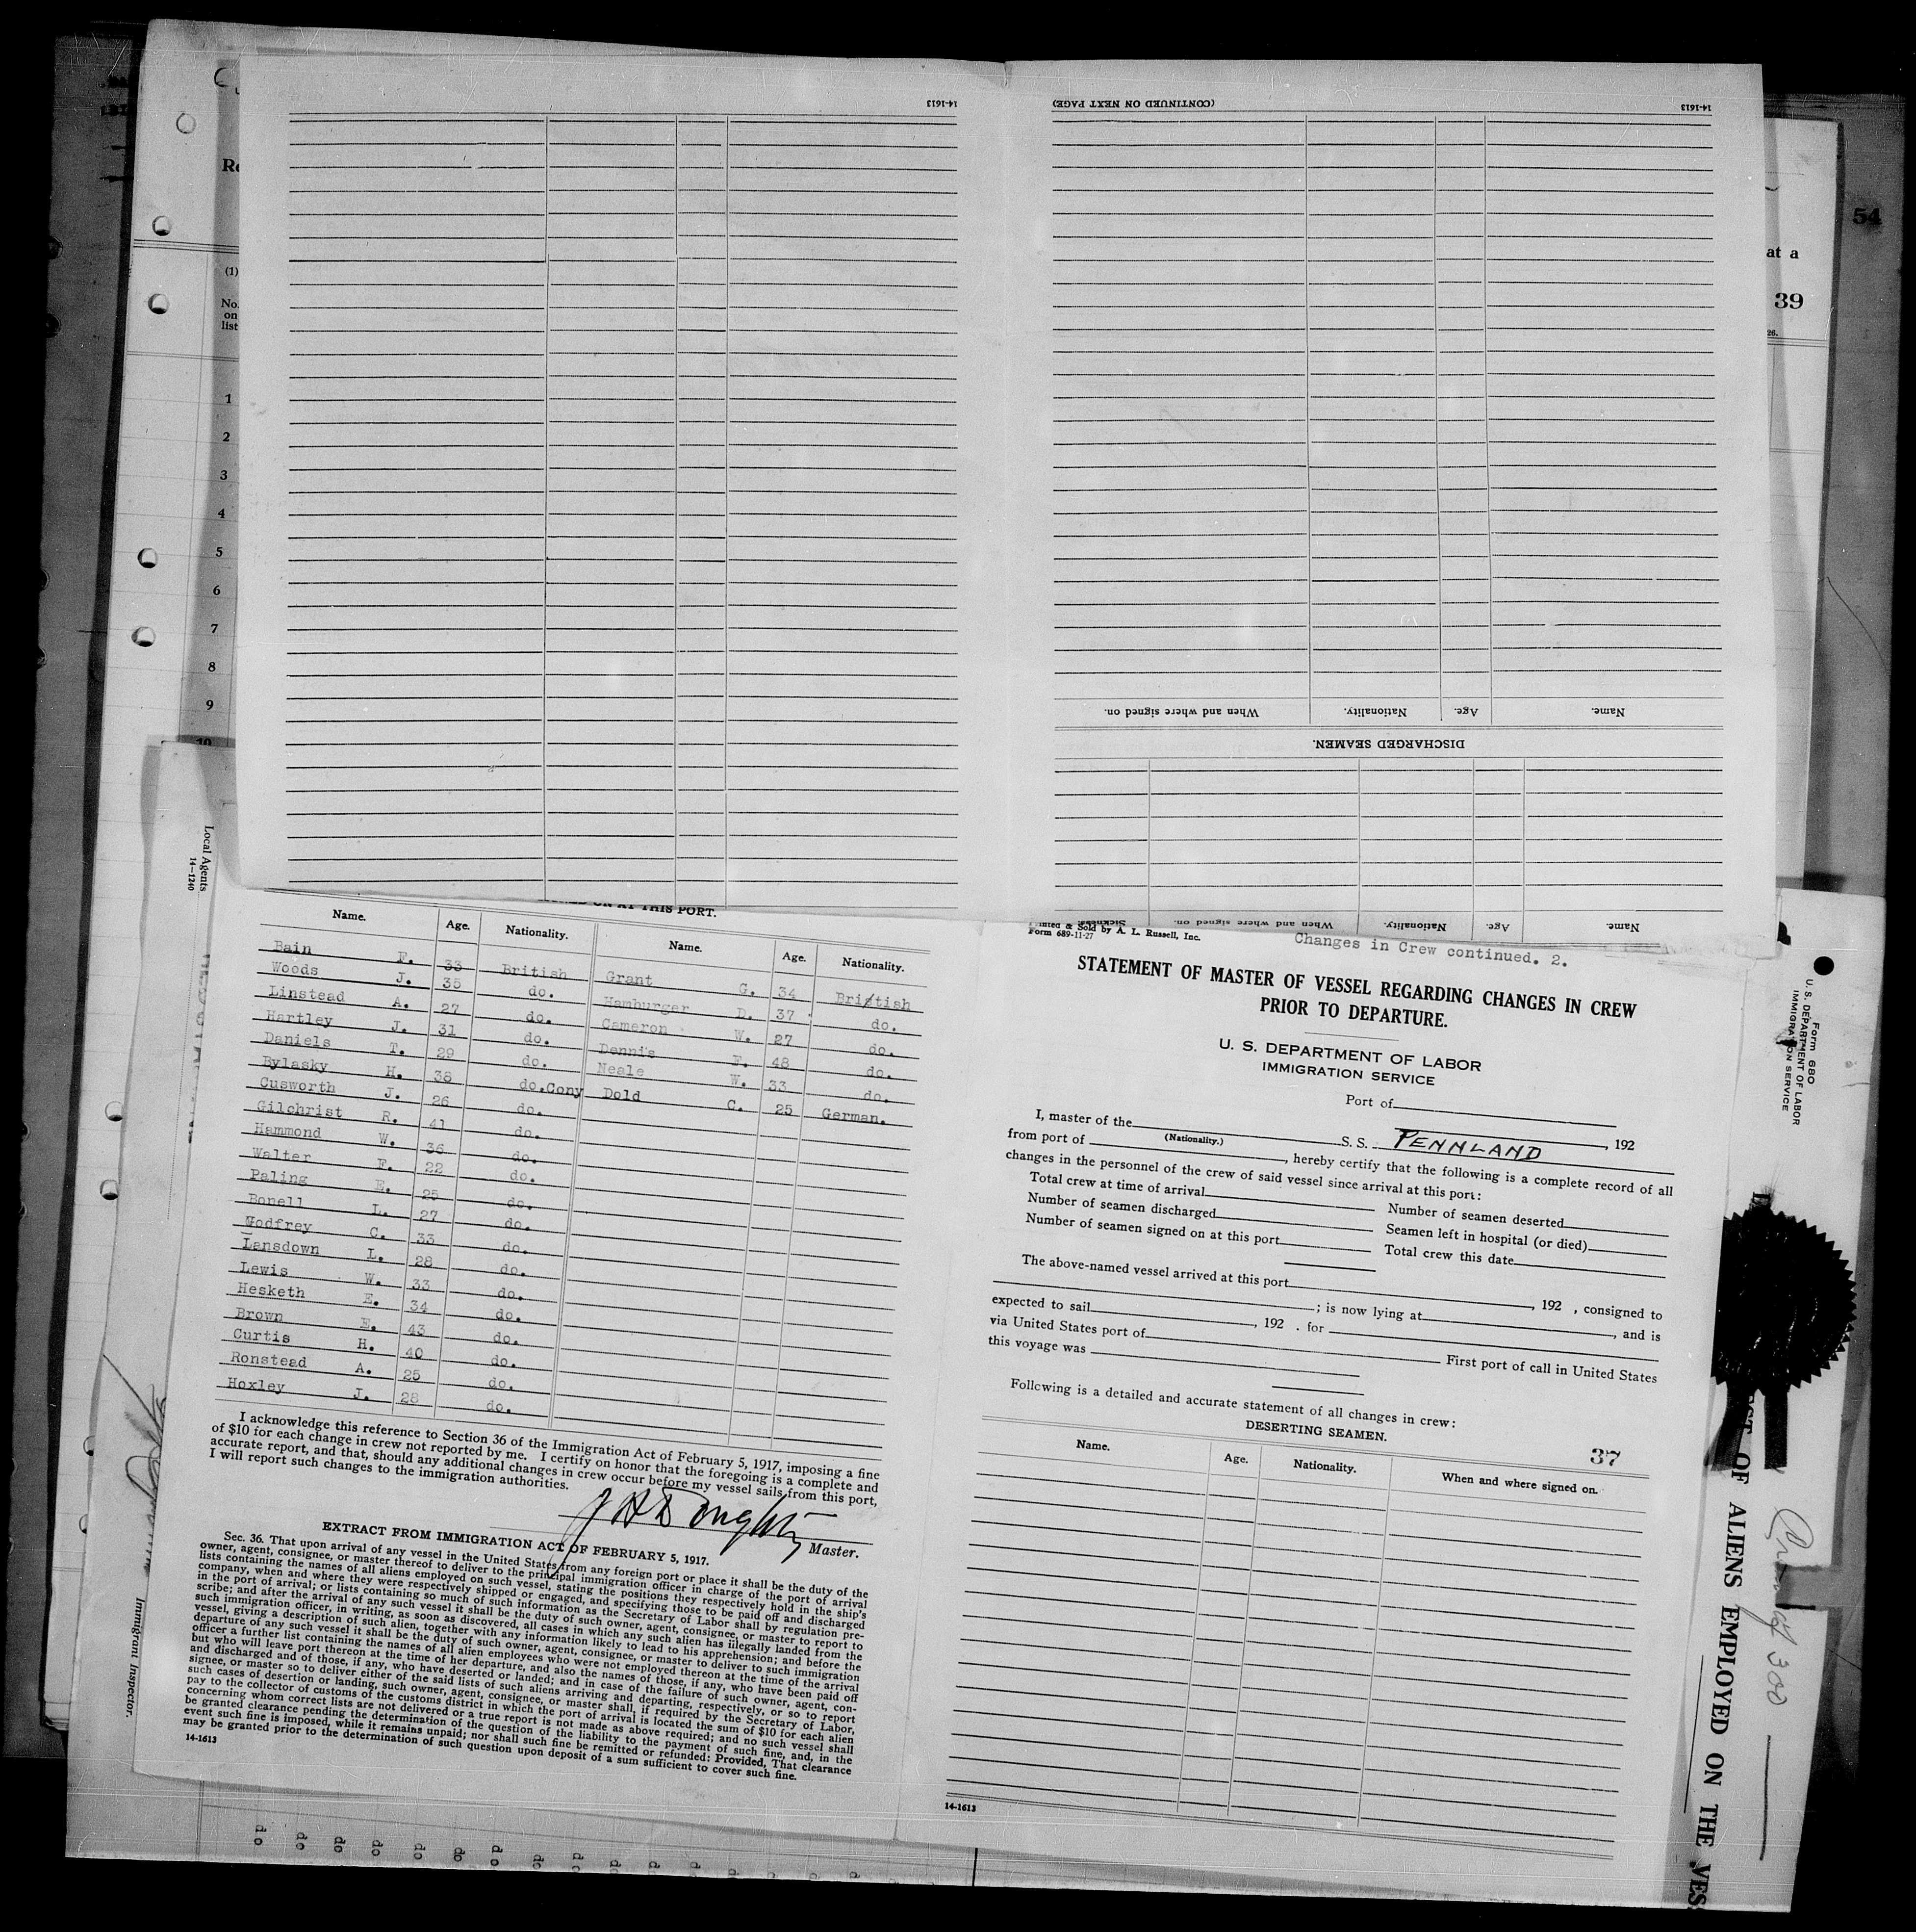 14-1613
(CONTINUED ON NEXT PAGE)
14-1613
54
at a
39
26.
(1)
No.
on
list
1
2
3
4
5
6
7
8
9
10
Name. Age. Nationality. When and where signed on.
DISCHARGED SEAMEN.
Name. Age. Nationality. When and where signed on. Sickness.
Local Agents
14-1240
Immigrant Inspector.
AT THIS PORT.
Name. Age. Nationality. Name. Age. Nationality.
Bain F. 33 British Grant G. 34 British
Woods J. 35 do. Hamburger D. 37 do.
Linstead A. 27 do. Cameron W. 27 do.
Hartley J. 31 do. Dennis F. 48 do.
Daniels T. 29 do. Neale W. 33 do.
Bylasky H. 38 do.Cony Dold C. 25 German.
Cusworth J. 26 do.
Gilchrist R. 41 do.
Hammond W. 36 do.
Walter F. 22 do.
Paling E. 25 do.
Bonell L. 27 do.
Godfrey C. 33 do.
Lansdown L. 28 do.
Lewis W. 33 do.
Hesketh E. 34 do.
Brown E. 43 do.
Curtis H. 40 do.
Ronstead A. 25 do.
Hoxley J. 28 do.
I acknowledge this reference to Section 36 of the Immigration Act of February 5, 1917, imposing a fine
of $10 for each change in crew not reported by me. I certify on honor that the foregoing is a complete and
accurate report, and that, should any additional changes in crew occur before my vessel sails from this port,
I will report such changes to the immigration authorities.
Master.
EXTRACT FROM IMMIGRATION ACT OF FEBRUARY 5, 1917.
Sec. 36. That upon arrival of any vessel in the United States from any foreign port or place it shall be the duty of the
owner, agent, consignee, or master thereof to deliver to the principal immigration officer in charge of the port of arrival
lists containing the names of all aliens employed on such vessel, stating the positions they respectively hold in the ship's
company, when and where they were respectively shipped or engaged, and specifying those to be paid off and discharged
in the port of arrival; or lists containing so much of such information as the Secretary of Labor shall by regulation pre-
scribe; and after the arrival of any such vessel it shall be the duty of such owner, agent, consignee, or master to report to
such immigration officer, in writing, as soon as discovered, all cases in which any such alien has illegally landed from the
vessel, giving a description of such alien, together with any information likely to lead to his apprehension; and before the
departure of any such vessel it shall be the duty of such owner, agent, consignee, or master to deliver to such immigration
officer a further list containing the names of all alien employees who were not employed thereon at the time of the arrival
but who will leave port thereon at the time of her departure, and also the names of those, if any, who have been paid off
and discharged and of those, if any, who have deserted or landed; and in case of the failure of such owner, agent, con-
signee, or master so to deliver either of the said lists of such aliens arriving and departing, respectively, or so to report
such cases of desertion or landing, such owner, agent, consignee, or master shall, if required by the Secretary of Labor,
pay to the collector of customs of the customs district in which the port of arrival is located the sum of $10 for each alien
concerning whom correct lists are not delivered or a true report is not made as above required; and no such vessel shall
be granted clearance pending the determination of the question of the liability to the payment of such fine, and, in the
event such fine is imposed, while it remains unpaid; nor shall such fine be remitted or refunded: Provided, That clearance
may be granted prior to the determination of such question upon deposit of a sum sufficient to cover such fine.
14-1613
Printed & Sold by A. L. Russell, Inc.
Form 689-11-27
Changes in Crew continued. 2.
STATEMENT OF MASTER OF VESSEL REGARDING CHANGES IN CREW
PRIOR TO DEPARTURE.
U. S. DEPARTMENT OF LABOR
IMMIGRATION SERVICE
Port of
, 192
I, master of the S. S. PENNLAND
(Nationality.)
from port of , hereby certify that the following is a complete record of all
changes in the personnel of the crew of said vessel since arrival at this port:
Total crew at time of arrival Number of seamen deserted
Number of seamen discharged Seamen left in hospital (or died)
Number of seamen signed on at this port Total crew this date
The above-named vessel arrived at this port , 192 , consigned to
; is now lying at , and is
expected to sail , 192 . for
via United States port of First port of call in United States
this voyage was
Following is a detailed and accurate statement of all changes in crew:
DESERTING SEAMEN.
37
Name. Age. Nationality. When and where signed on.
14-1613
Form 680
U. S. DEPARTMENT OF LABOR
IMMIGRATION SERVICE
OF ALIENS EMPLOYED ON THE VES
300
do do do do do do do do do do do do do do do do